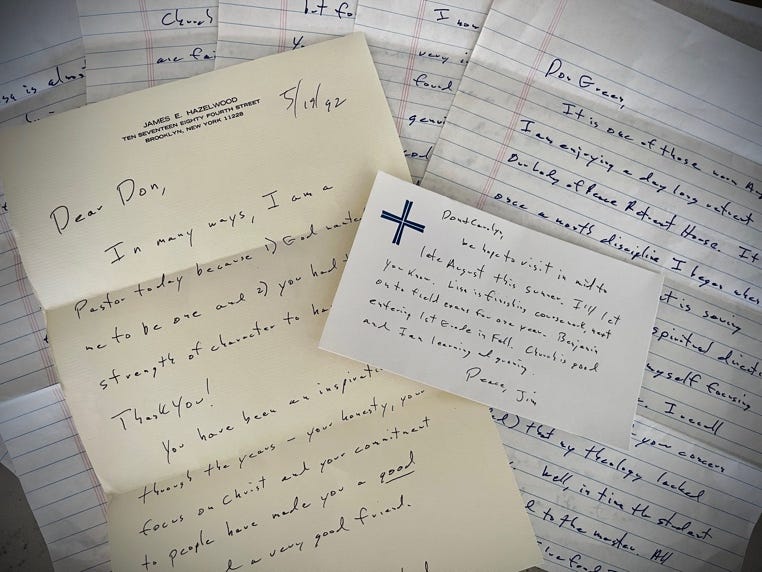 Church
are fai
but fo
I now
very i
found
genui
JAMES E. HAZELWOOD
TEN SEVENTEEN EIGHTY FOURTH STREET
BROOKLYN, NEW YORK 11228
5/19/92
Dear Don,
In many ways, I am a
Pastor today because 1) God wante
me to be one and 2) you had t
strength of character to ha
Thank You!
You have been an inspirati
through the years – your honesty, your
focus on Christ and your commitment
to people have made you a good
a very good friend.
Don & Carolyn,
We hope to visit in mid to
late August this summer. I'll let
you know. Lisa is finishing coursework next
on to field exams for one year. Benjamin
entering 1st Grade in Fall. Church is good
and I am learning and growing.
Peace, Jim
Don Green,
It is one of those warm Aug
I am enjoying a day long retreat
Our Lady of Peace Retreat House. It
once a month discipline I began when
t is saving
spiritual directo
myself focusing
. I recall
– your concern
) that my theology lacked
well, in time the student
to the master. All